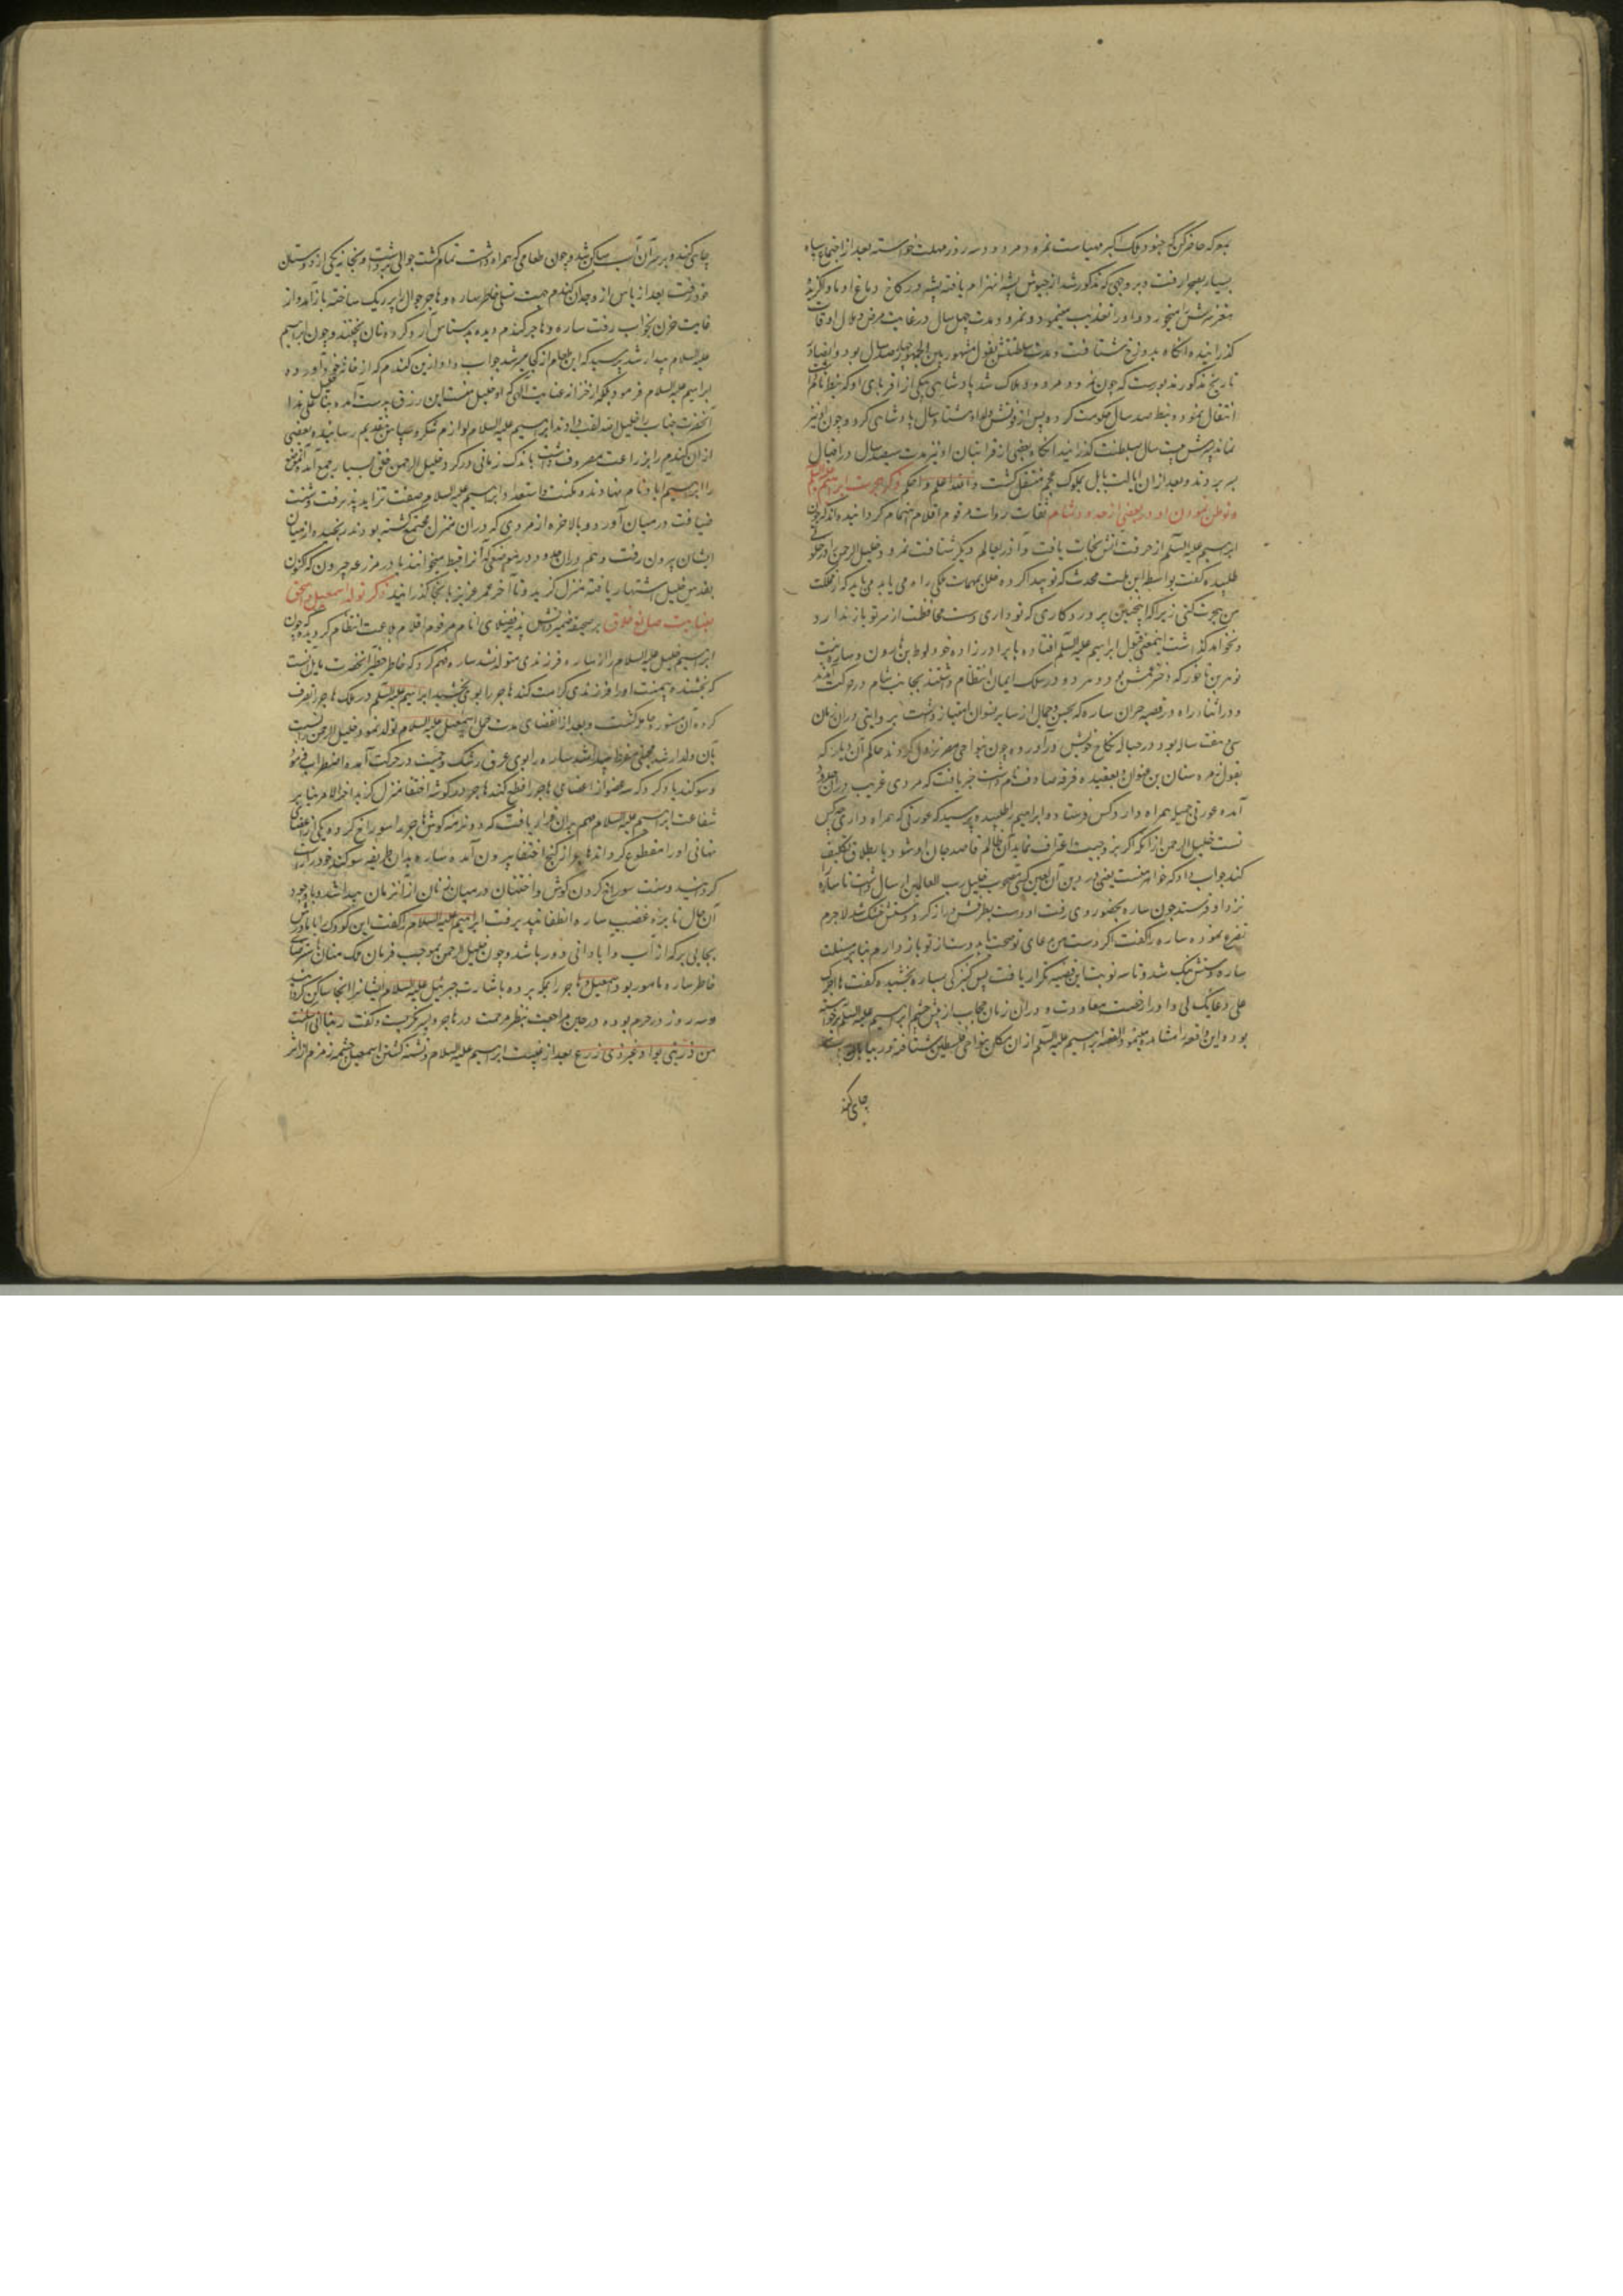 بمعرکه حاضر کن که جنود ملک اکبر مهیاست نمرود مردود سه روز مهلت خواسته بعد از اجتماع سپاه
بسیار بصحرا رفت و بر وجهی که مذکور شد از جیوش پشه انهزام یافته پشه در کاخ دماغ او ماوا کزیده
مغز سرش را میخورد و او را تعذیب مینمود و نمرود مدت چهل سال در غایت مرض و ملال اوقات
کذرانیده انکاه بدوزخ شتافت و مدت سلطنتش بقول مشهور بین الجمهور چهارصد سال بود و ایضا در
تاریخ مذکور مزبورست که چون نمرود مردود هلاک شد پادشاهی بیکی از اقربای او که نبط نام داشت
انتقال نمود و نبط صد سال حکومت کرده پس از فوتش ولد او هشتاد سال پادشاهی کرد و چون او نیز
نماند پسرش بیست سال بسلطنت کذرانید انکاه بعضی از قرابتان او نیز مدت سیصد سال در اقبال
بسر بردند و بعد از ان ایالت بابل بملوک عجم منتقل کشت والله اعلم و احکم ذکر هجرت ابراهیم علیه السلم
و توطن نمودن او در بعضی از حدود شام ثقات روات مرقوم اقلام اهتمام کردانیده اند که چون
ابراهیم علیه السلم از حرقت آتش نجات یافت و آذر بعالم دیکر شتافت نمرود خلیل الرحمن را در خلوتی
طلبیده کفت بواسطه این ملت محدث که تو پیدا کرده خلل بمهمات ملکی راه می یابد می باید که از مملکت
من هجرت کنی زیرا که اینچنین پروردکاری که تو داری دست محافظت از سر تو باز ندارد
و نخواهد کذاشت اینمعنی قبول ابراهیم علیه السلم افتاده با برادرزاده خود لوط بن هارون و ساره بنت
نوبر بن ناحور که دختر عمش بود و هر دو در سلک ایمان انتظام داشتند بجانب شام در حرکت آمدند
و در اثناء راه در قصبه حران ساره که بحسن و جمال از سایر نسوان امتیاز داشت بر وایتی در ان زمان
سی هفت ساله بود در حباله نکاح خویش درآورده چون بنواحی مصر نزول کردند حاکم آن دیار که
بقول زمره سنان بن علوان و بعقیده فرقه صادوف نام داشت خبر یافت که مردی غریب در این حدود
آمده عورتی جمیله همراه دارد کس فرستاد و ابراهیم را طلبیده پرسید که عورتی که همراه داری چه کس
تست خلیل الرحمن از آنکه اکر بزوجیت اعتراف نماید آن ظالم قاصد جان او شود یا بطلاق تکلیف
کند جواب داد که خواهر منست یعنی در دین آن لعین کسی مصحوب خلیل رب العالمین ارسال داشت تا ساره را
نزد او فرستد چون ساره بحضور وی رفت او دست بطرفش دراز کرد دستش خشک شد لاجرم
تضرع نموده ساره را کفت اکر دست من بدعای تو صحت یابد دست از تو باز دارم بنابر مسئلت
ساره دستش نیک شد و تا سه نوبت این قضیه تکرار یافت پس کنیزکی بساره بخشیده کفت ها اجرک
علی دعائک لی و او را رخصت معاودت داد و در ان زمان حجاب از پیش چشم ابراهیم علیه السلم برخواسته
بود و این واقعه را مشاهده مینمود القصه ابراهیم علیه السلم از ان مکان بنواحی فلسطین شتافته در بیابان
چاهی کند
چاهی کند و بر سر آن آب ساکن شد و چون طعامی که همراه داشت تمام کشت جوالی برداشت و بخانه یکی از دوستان
خود رفت بعد از یاس از وجدان کندم جهت تسلی خاطر ساره و هاجر جوال را پر ریک ساخته باز آمد و از
غایت حزن بخواب رفت ساره و هاجر کندم دیده بدستاس آرد کرده نان پختند و چون ابراهیم
علیه السلام بیدار شد پرسید که این طعام از کجا میسر شد جواب دادند از ین کندم که از خانه خود آورده
ابراهیم علیه السلام فرمود بلکه از خزانه عنایت الهی که او خلیل منست این رزق بدست آمده
آنحضرت جناب را خلیل الله لقب دادند ابراهیم علیه السلام لوازم شکر و سپاس بتقدیم رسانیده بعضی
از آن کندم را بزراعت مصروف داشت باندک زمانی در کرد خلیل الرحمن خلق بسیار جمع آمد آنموضع
را ابراهیم آباد نام نهادند و مکنت و استعداد ابراهیم علیه السلام صفت تزاید پذیرفت و سنت
ضیافت در میان آورد و بالاخره از مردمی که در ان منزل مجتمع کشته بودند رنجیده از میان
ایشان بیرون رفت و هم در ان حدود در موضعی که آنرا قبط میخوانند یا در مزرعه حبرون که اکنون
بقدس خلیل اشتهار یافته منزل کزید و تا آخر عمر عزیز با نجا کذرانید ذکر تولد اسمعیل و اسحق
بعنایت صانع خلاق بر صحیفه ضمیر دانش پذیر فضلای انام مرقوم اقلام بلاغت انتظام کردیده که چون
ابراهیم خلیل علیه السلام را از ساره فرزندی متولد نشد ساره فهم کرد که خاطر خطیر آنحضرت مایل آنست
که بخشنده بیمنت او را فرزندی کرامت کند هاجر را بوی بخشید ابراهیم علیه السلم در ملک هاجر تصرف
کرده آن مستوره حامله کشت و بعد از انقضای مدت حمل اسمعیل علیه السلام تولد نمود و خلیل الرحمن را نسبت
بآن ولد ارشد محبتی مفرط پیدا شد ساره را بوی عرق رشک و حمیت در حرکت آمده اضطراب فرمود
و سوکند یاد کرد که سه عضو از اعضای هاجر را قطع کند هاجر در کوشه اختفا منزل کزید آخر الامر بنا بر
شفاعت ابراهیم علیه السلام مهم بران قرار یافت که دو نرمه کوش هاجر را سوراخ کرده یکی از اعضای
نهانی او را مقطوع کرداند هاجر از کنج اختفا بیرون آمده ساره بدان طریقه سوکند خود راست
کردانید و سنت سوراخ کردن کوش و اختتان در میان نسوان از آنزمان پیدا شد و با وجود
آن حال نایره غضب ساره انطفا نپذیرفت ابراهیم علیه السلام را کفت این کودک را با مادرش
بجایی بر که از آب و آبادانی دور باشد و چون خلیل الرحمن بموجب فرمان ملک منان
خاطر ساره مامور بود اسمعیل و هاجر را بمکه برده باشارت جبرئیل علیه السلام ایشانرا آنجا ساکن کردانید
و سه روز در حرم بوده در حین مراجعت بنظر مرحمت در هاجر و پسر نکریست و کفت ربنا انی اسکنت
من ذریتی بواد غیر ذی زرع بعد از غیبت ابراهیم علیه السلام و تشنه کشتن اسمعیل چشمه زمزم از اثر